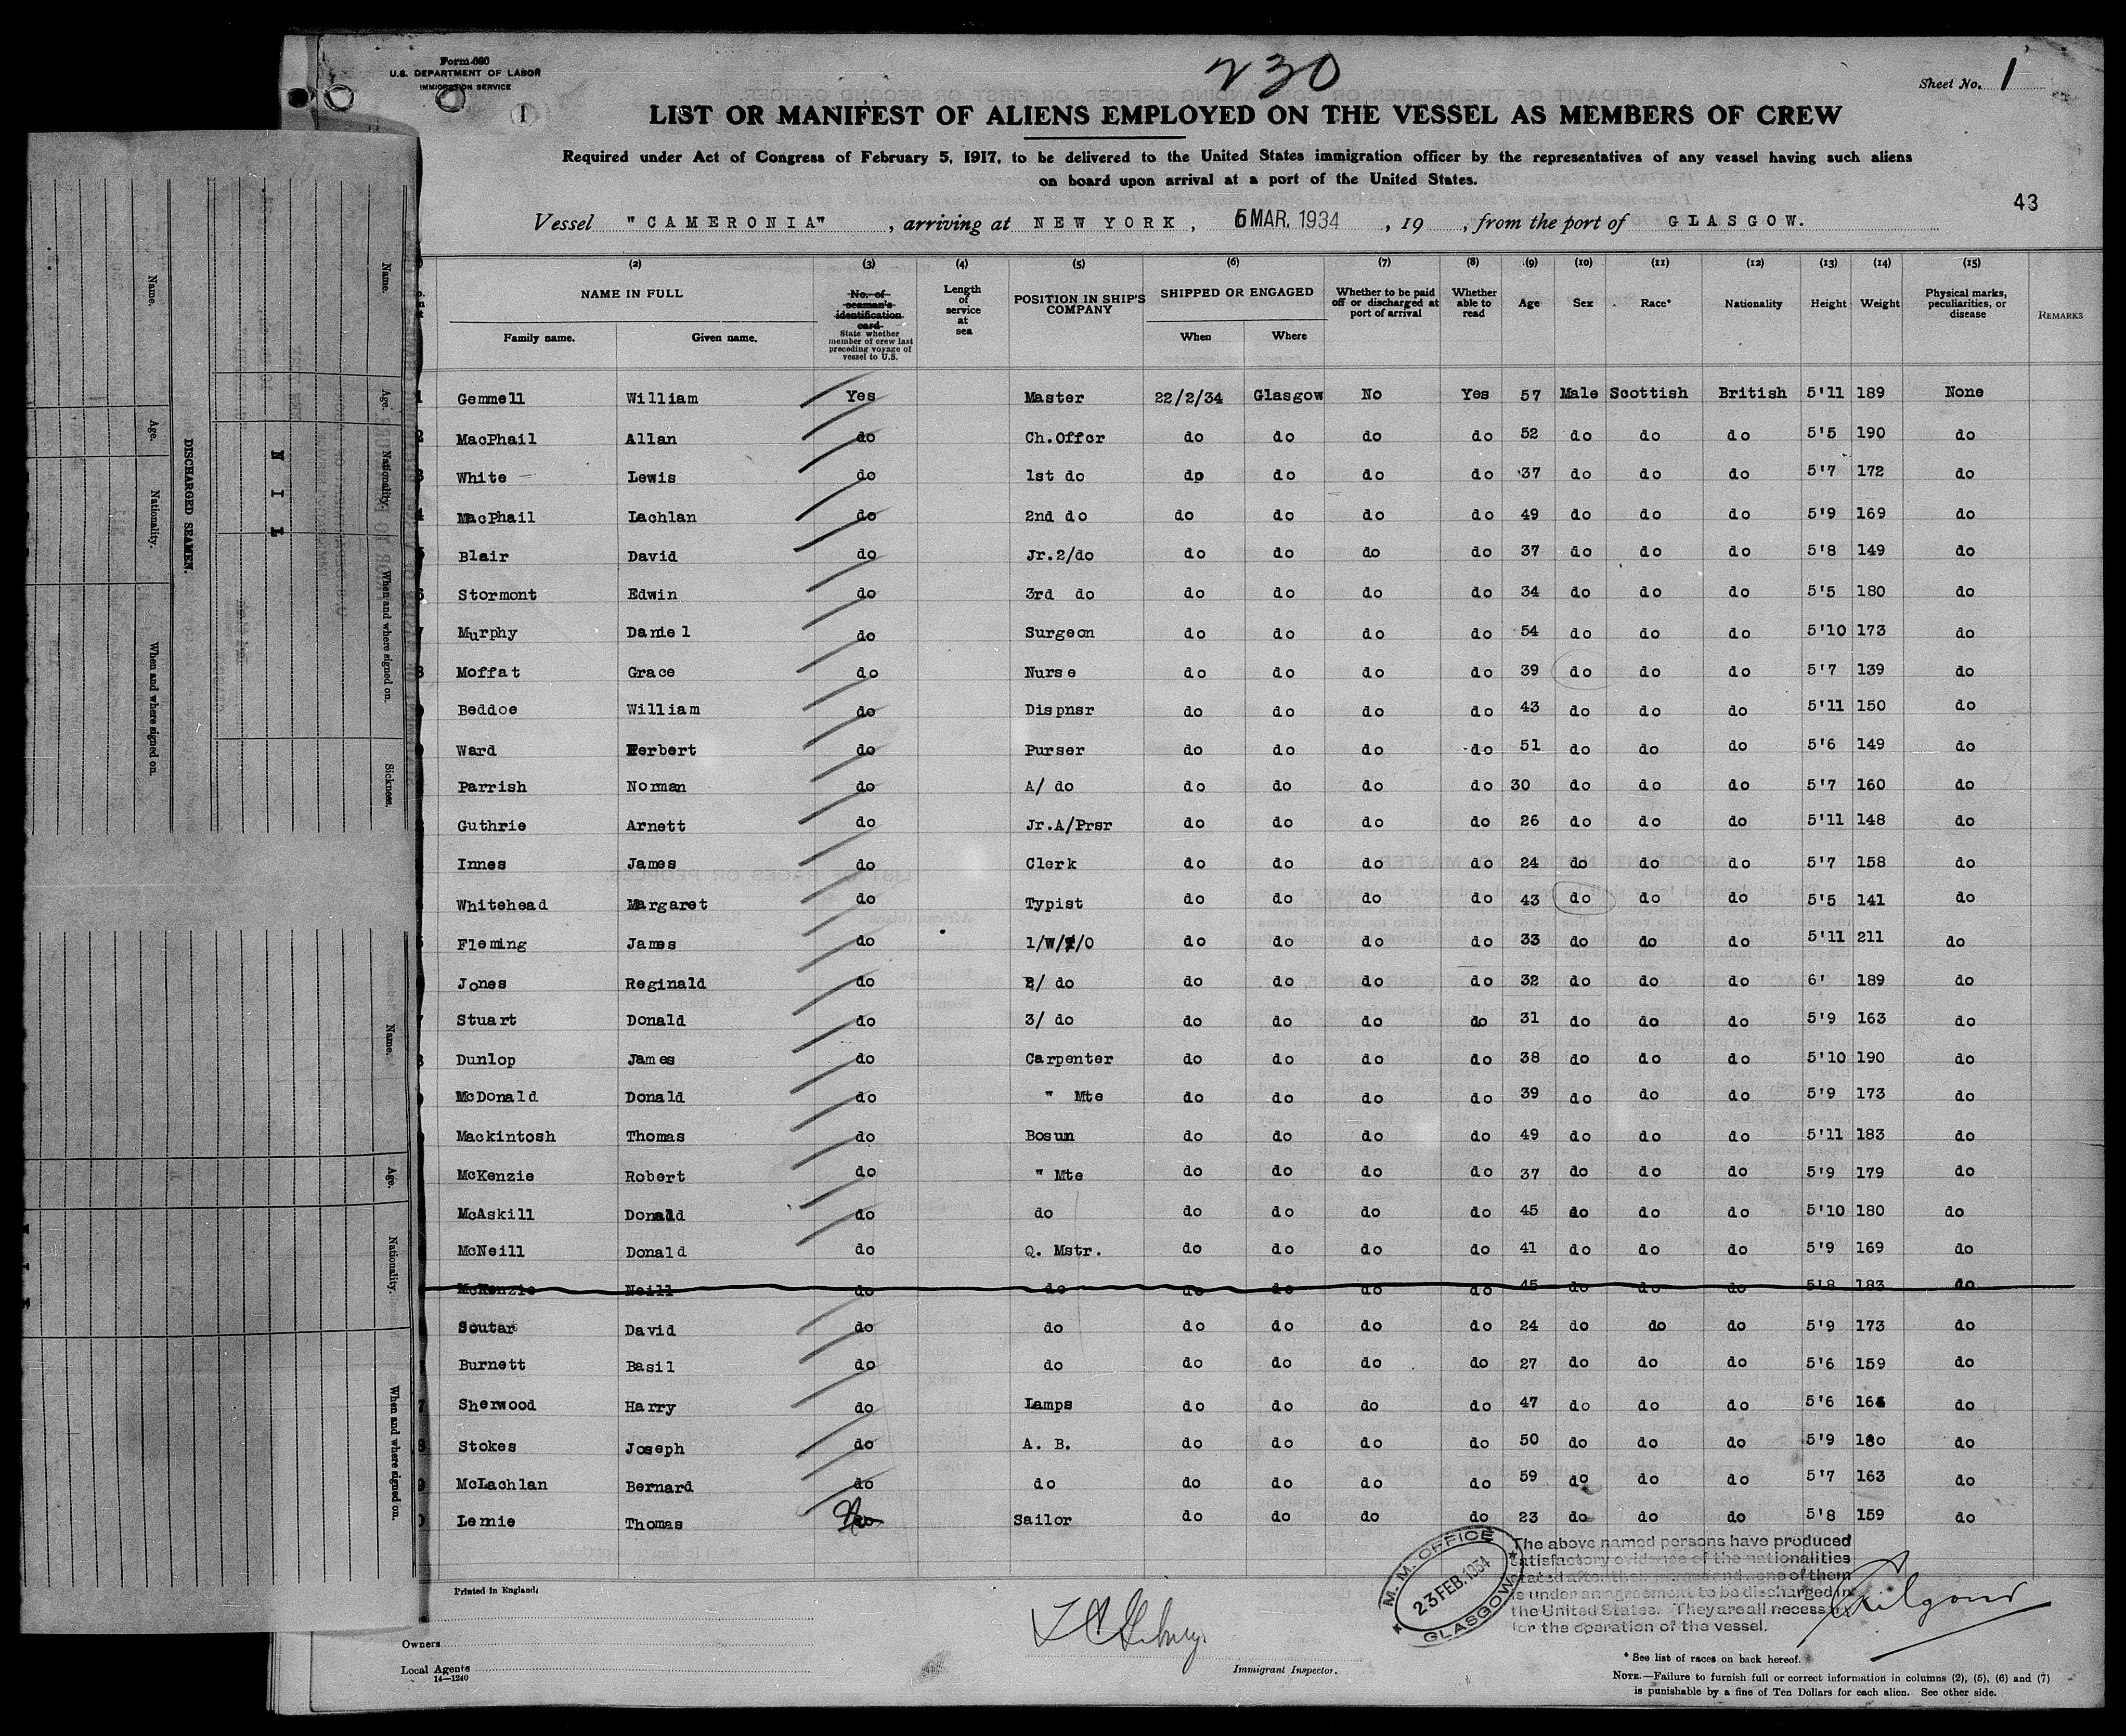 Form 680
U.S. DEPARTMENT OF LABOR
IMMIGRATION SERVICE
1
230
Sheet No. 1
LIST OR MANIFEST OF ALIENS EMPLOYED ON THE VESSEL AS MEMBERS OF CREW
Required under Act of Congress of February 5, 1917, to be delivered to the United States immigration officer by the representatives of any vessel having such aliens
on board upon arrival at a port of the United States.
43
Vessel "CAMERONIA", arriving at NEW YORK, 5 MAR. 1934, 19 , from the port of GLASGOW.
(2) (3) (4) (5) (6) (7) (8) (9) (10) (11) (12) (13) (14) (15)
NAME IN FULL
Family name. Given name.
No. of seaman's identification card
State whether member of crew last preceding voyage of vessel to U.S.
Length of service at sea
POSITION IN SHIP'S COMPANY
SHIPPED OR ENGAGED
When Where
Whether to be paid off or discharged at port of arrival
Whether able to read
Age Sex Race* Nationality Height Weight
Physical marks, peculiarities, or disease
REMARKS
1 Gemmell William Yes Master 22/2/34 Glasgow No Yes 57 Male Scottish British 5'11 189 None
2 MacPhail Allan do Ch.Offcr do do do do 52 do do do 5'5 190 do
3 White Lewis do 1st do do do do do 37 do do do 5'7 172 do
4 MacPhail Lachlan do 2nd do do do do do 49 do do do 5'9 169 do
5 Blair David do Jr.2/do do do do do 37 do do do 5'8 149 do
6 Stormont Edwin do 3rd do do do do do 34 do do do 5'5 180 do
7 Murphy Daniel do Surgeon do do do do 54 do do do 5'10 173 do
8 Moffat Grace do Nurse do do do do 39 do do do 5'7 139 do
9 Beddoe William do Dispnsr do do do do 43 do do do 5'11 150 do
Ward Herbert do Purser do do do do 51 do do do 5'6 149 do
Parrish Norman do A/ do do do do do 30 do do do 5'7 160 do
Guthrie Arnett do Jr.A/Prsr do do do do 26 do do do 5'11 148 do
Innes James do Clerk do do do do 24 do do do 5'7 158 do
Whitehead Margaret do Typist do do do do 43 do do do 5'5 141 do
Fleming James do 1/W/T/O do do do do 33 do do do 5'11 211 do
Jones Reginald do 2/ do do do do do 32 do do do 6' 189 do
Stuart Donald do 3/ do do do do do 31 do do do 5'9 163 do
Dunlop James do Carpenter do do do do 38 do do do 5'10 190 do
McDonald Donald do " Mte do do do do 39 do do do 5'9 173 do
Mackintosh Thomas do Bosun do do do do 49 do do do 5'11 183 do
McKenzie Robert do " Mte do do do do 37 do do do 5'9 179 do
McAskill Donald do do do do do do 45 do do do 5'10 180 do
McNeill Donald do Q. Mstr. do do do do 41 do do do 5'9 169 do
McKenzie Neill do do do do do do 45 do do do 5'8 183 do
Soutar David do do do do do do 24 do do do 5'9 173 do
Burnett Basil do do do do do do 27 do do do 5'6 159 do
7 Sherwood Harry do Lamps do do do do 47 do do do 5'6 164 do
8 Stokes Joseph do A. B. do do do do 50 do do do 5'9 180 do
9 McLachlan Bernard do do do do do do 59 do do do 5'7 163 do
0 Lennie Thomas Sailor do do do do 23 do do do 5'8 159 do
Printed in England.
Owners
Local Agents
14—1240
Immigrant Inspector.
M. M. OFFICE
23 FEB. 1934
GLASGOW
The above named persons have produced
satisfactory evidence of the nationalities
stated after their names and none of them
is under an agreement to be discharged in
the United States. They are all necessary
for the operation of the vessel.
* See list of races on back hereof.
NOTE.—Failure to furnish full or correct information in columns (2), (5), (6) and (7)
is punishable by a fine of Ten Dollars for each alien. See other side.
DISCHARGED SEAMEN.
Name. Age. Nationality. When and where signed on.
NIL
Name. Age. Nationality. When and where signed on. Sickness.
Name. Age. Nationality. When and where signed on.